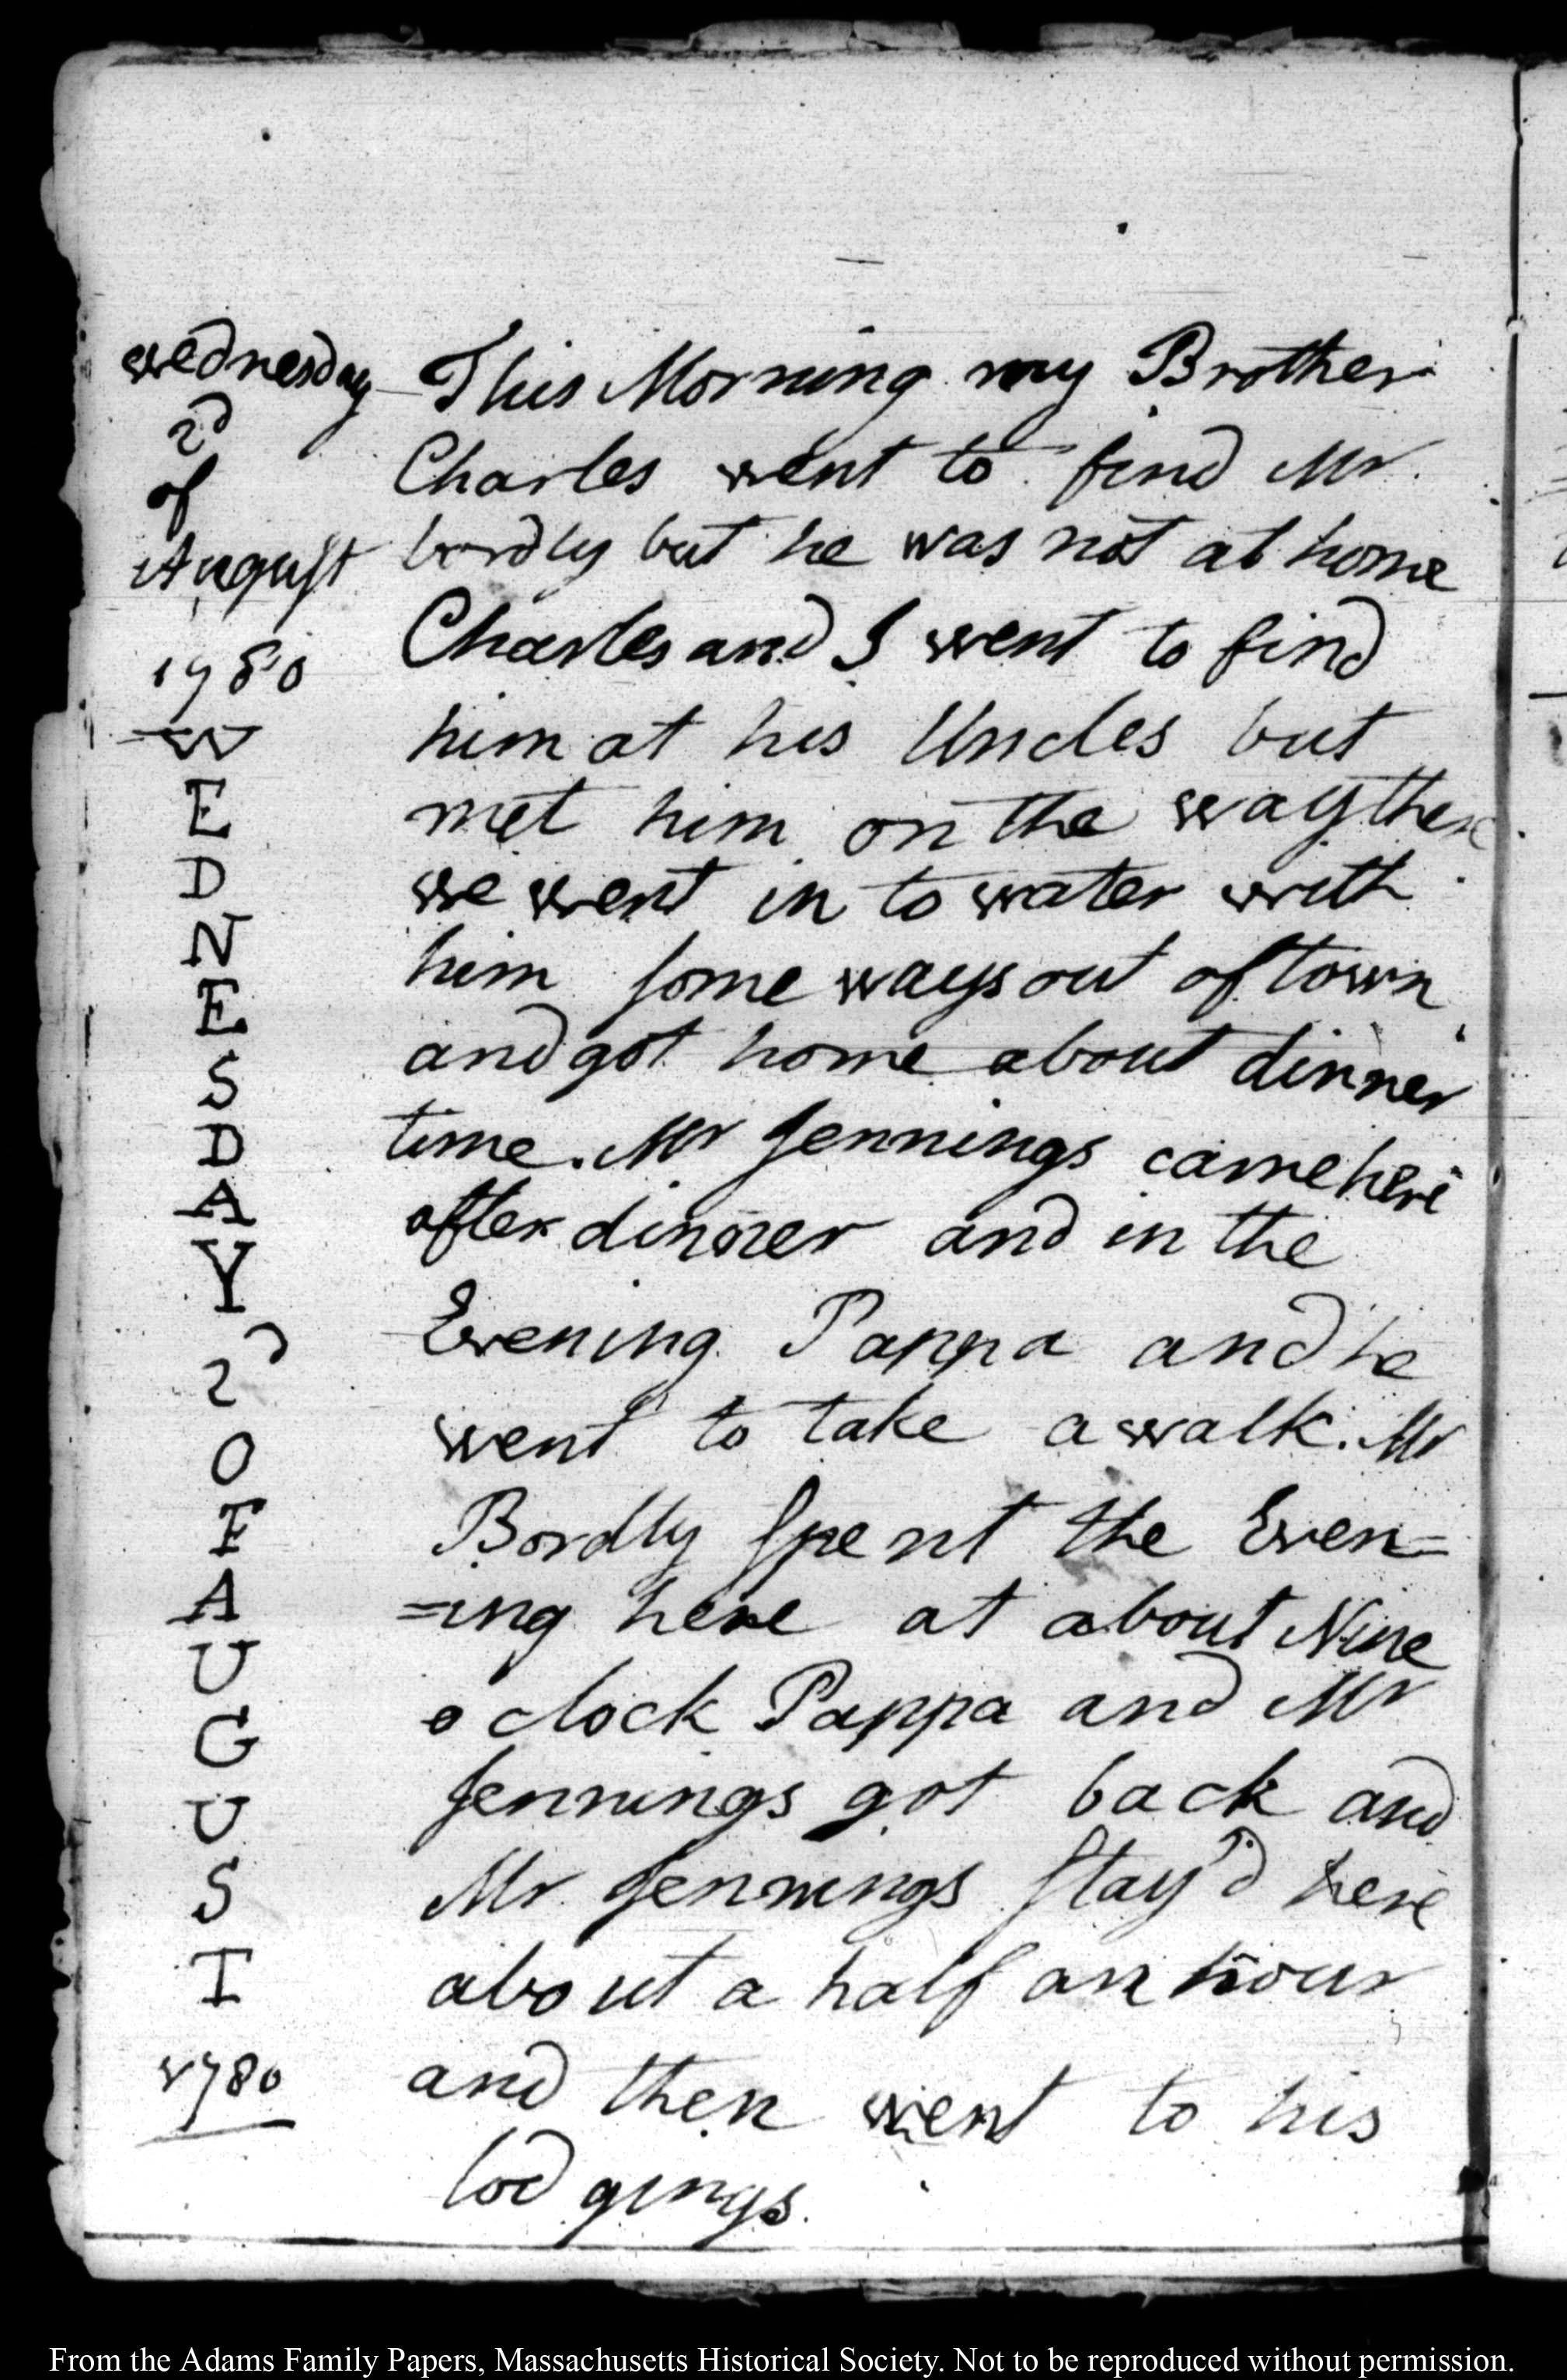 Wednesday
2d
of
August
1780
W
E
D
N
E
S
D
A
Y
2d
O
F
A
U
G
U
S
T
1780
This Morning my Brother
Charles went to find Mr
bordly but he was not at home
Charles and I went to find
him at his Uncles but
met him on the way then
we went in to water with
him some ways out of town
and got home about dinner
time. Mr Jennings came here
after dinner and in the
Evening Pappa and he
went to take a walk. Mr
Bordly spent the Even=
=ing here at about Nine
o clock Pappa and Mr
Jennings got back and
Mr Jennings stay'd here
about a half an hour
and then went to his
lodgings.
From the Adams Family Papers, Massachusetts Historical Society. Not to be reproduced without permission.